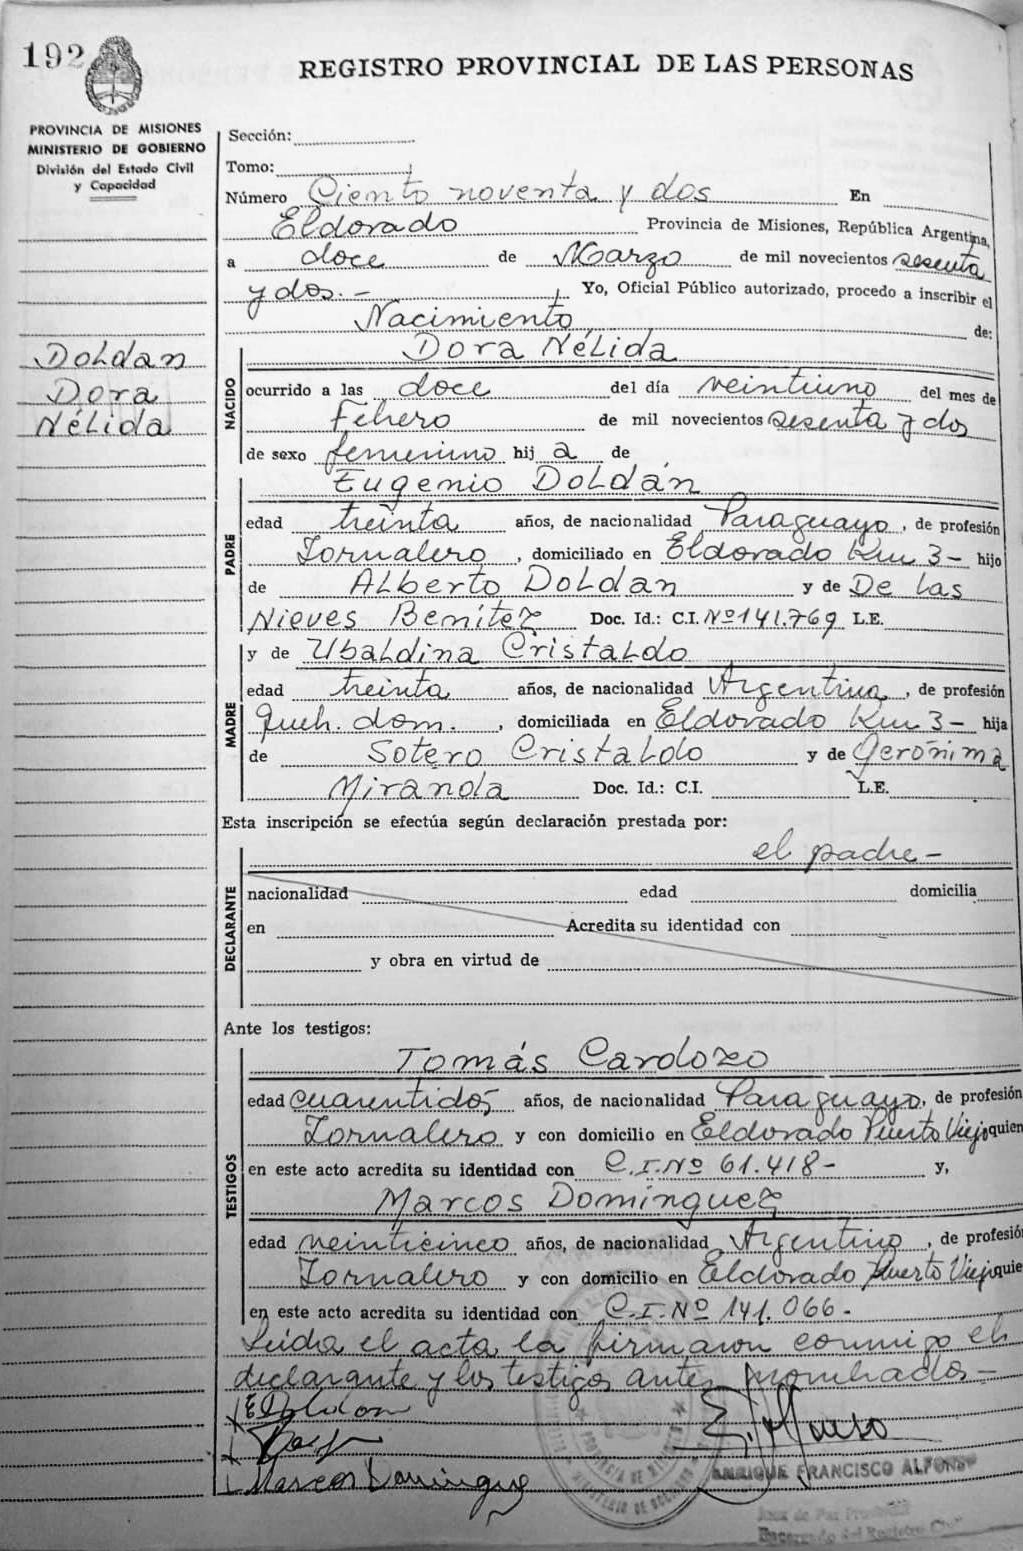 192
REGISTRO PROVINCIAL DE LAS PERSONAS
PROVINCIA DE MISIONES
MINISTERIO DE GOBIERNO
División del Estado Civil
y Capacidad
Doldan
Dora
Nélida
Sección:
Tomo:
Número Ciento noventa y dos En
Eldorado Provincia de Misiones, República Argentina,
a doce de Marzo de mil novecientos sesenta
y dos.- Yo, Oficial Público autorizado, procedo a inscribir el
Nacimiento de:
NACIDO
Dora Nélida
ocurrido a las doce del día veintiuno del mes de
Febrero de mil novecientos sesenta y dos
de sexo femenino hij a de
PADRE
Eugenio Doldán
edad treinta años, de nacionalidad Paraguayo, de profesión
Jornalero, domiciliado en Eldorado Km 3- hijo
de Alberto Doldan y de De las
Nieves Benítez Doc. Id.: C.I. Nº 141.769 L.E.
y de Ubaldina Cristaldo
MADRE
edad treinta años, de nacionalidad Argentina, de profesión
queh. dom., domiciliada en Eldorado Km 3- hija
de Sotero Cristaldo y de Gerónima
Miranda Doc. Id.: C.I. L.E.
Esta inscripción se efectúa según declaración prestada por:
el padre-
DECLARANTE
nacionalidad edad domicilia
en Acredita su identidad con
y obra en virtud de
Ante los testigos:
TESTIGOS
Tomás Cardozo
edad cuarentidós años, de nacionalidad Paraguayo, de profesión
Jornalero y con domicilio en Eldorado Puerto Viejo quien
en este acto acredita su identidad con C.I. Nº 61.418- y,
Marcos Domínguez
edad veinticinco años, de nacionalidad Argentino, de profesió
Jornalero y con domicilio en Eldorado Puerto Viejo quie
en este acto acredita su identidad con C.I. Nº 141.066.-
Leída el acta la firmaron conmigo el
declarante y los testigos antes nombrados-
E Doldan
Marcos Domingue
ENRIQUE FRANCISCO ALFONSO
Juez de Paz
Encargado del Registro Civil